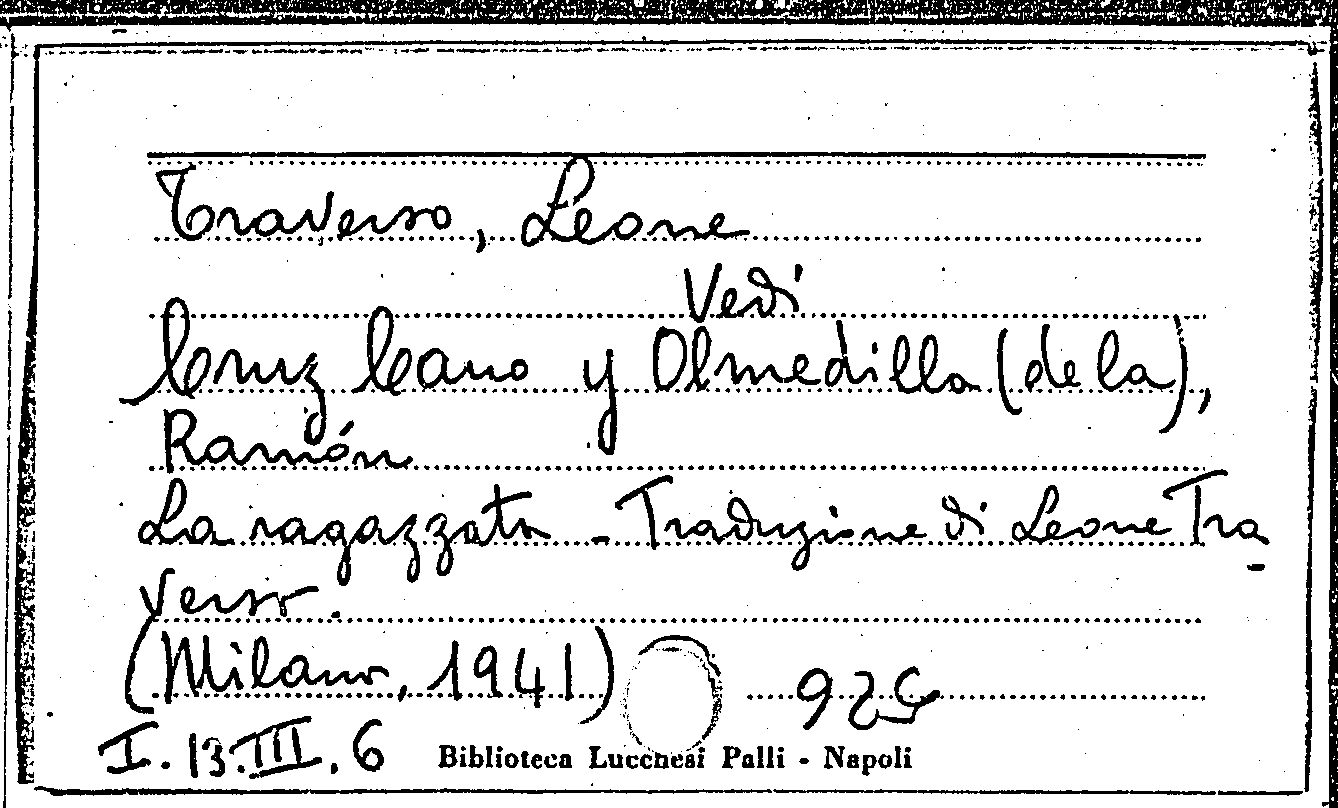 Traverso, Leone
Vedi
Cruz Cano y Olmedilla (de la),
Ramón
La ragazzata - Traduzione di Leone Tra-
verso.
(Milano, 1941) 925
I.13.III.6 Biblioteca Lucchesi Palli - Napoli